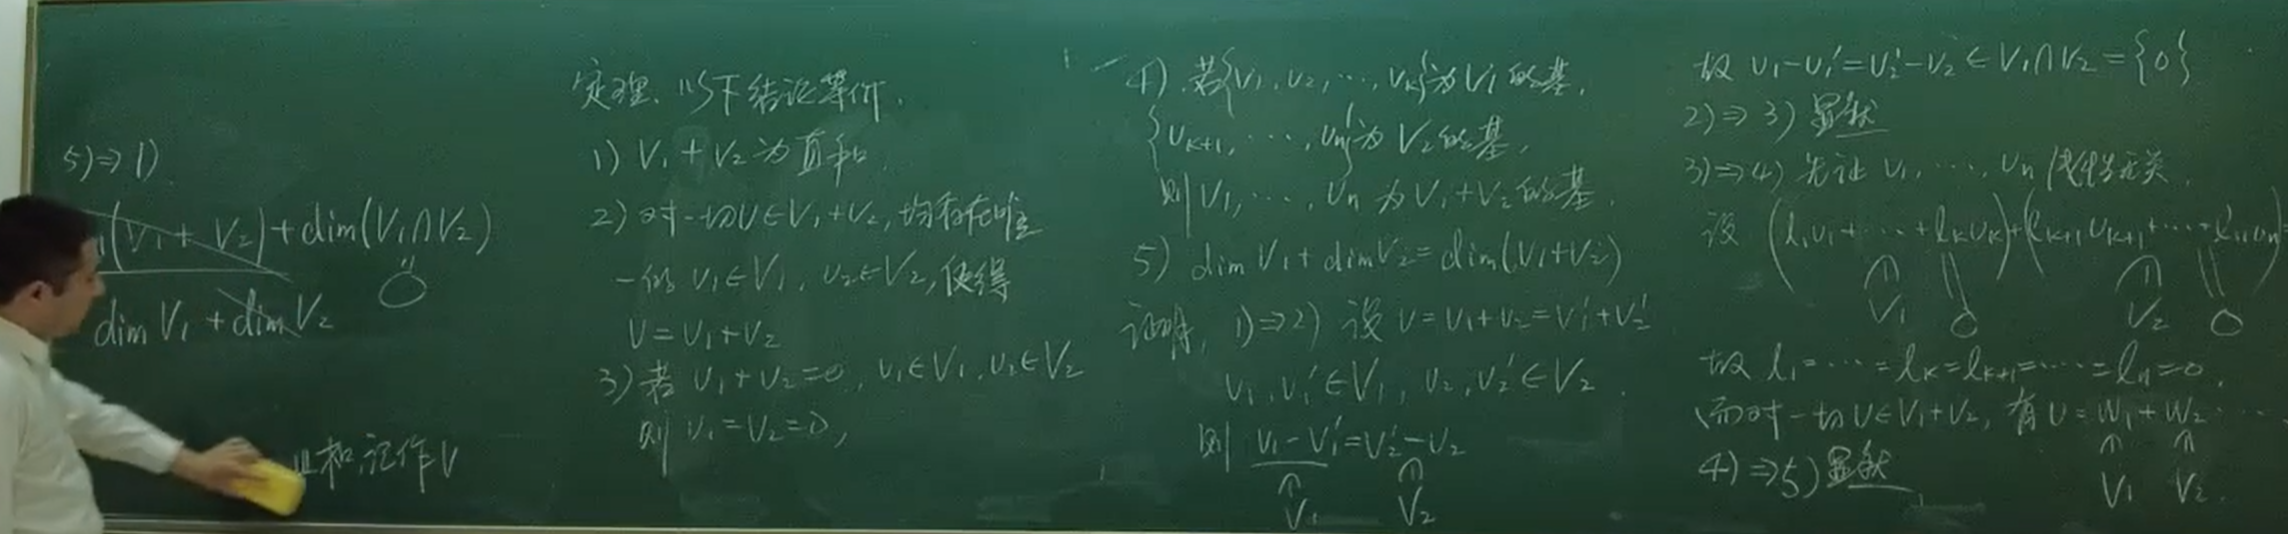 5)⇒1)
(V₁+V₂)+dim(V₁∩V₂)
"
0
dim V₁+dim V₂
和,记作V
定理、以下结论等价.
1) V₁+V₂为直和.
2) 对一切v∈V₁+V₂,均存在唯
一的 v₁∈V₁, v₂∈V₂,使得
v=v₁+v₂
3) 若 v₁+v₂=0, v₁∈V₁, v₂∈V₂
则 v₁=v₂=0,
4). 若{v₁,v₂,…,vₖ}为V₁的基,
{vₖ₊₁,…,vₙ}为V₂的基,
则v₁,…,vₙ为V₁+V₂的基.
5) dim V₁+dim V₂=dim(V₁+V₂)
证明, 1)⇒2) 设 v=v₁+v₂=v₁'+v₂'
v₁,v₁'∈V₁, v₂,v₂'∈V₂.
则 v₁-v₁'=v₂'-v₂
∩ ∩
V₁ V₂
故 v₁-v₁'=v₂'-v₂∈V₁∩V₂={0}
2)⇒3) 显然
3)⇒4) 先证 v₁,…,vₙ 线性无关.
设 (l₁v₁+…+lₖvₖ)+(lₖ₊₁vₖ₊₁+…+lₙvₙ)
∩ || ∩ ||
V₁ 0 V₂ 0
故 l₁=…=lₖ=lₖ₊₁=…=lₙ=0.
而对一切v∈V₁+V₂, 有v=w₁+w₂…
∩ ∩
V₁ V₂.
4)⇒5) 显然